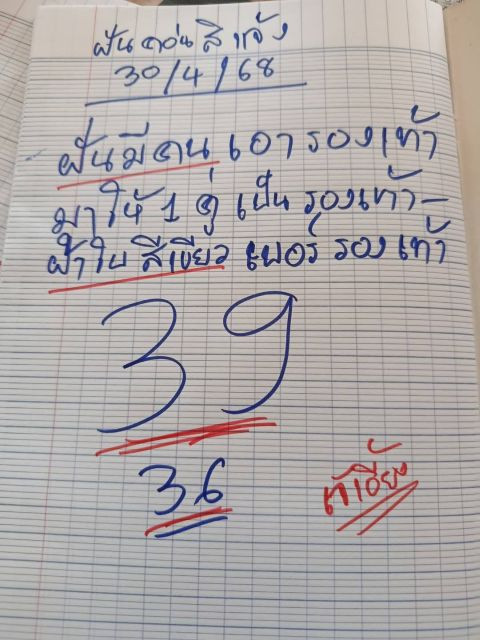 ฝันตอนสิแจ้ง
30/4/68
ฝันมีคนเอารองเท้า
มาให้ 1 คู่ เป็นรองเท้า-
ผ้าใบสีเขียว เบอร์รองเท้า
39
36